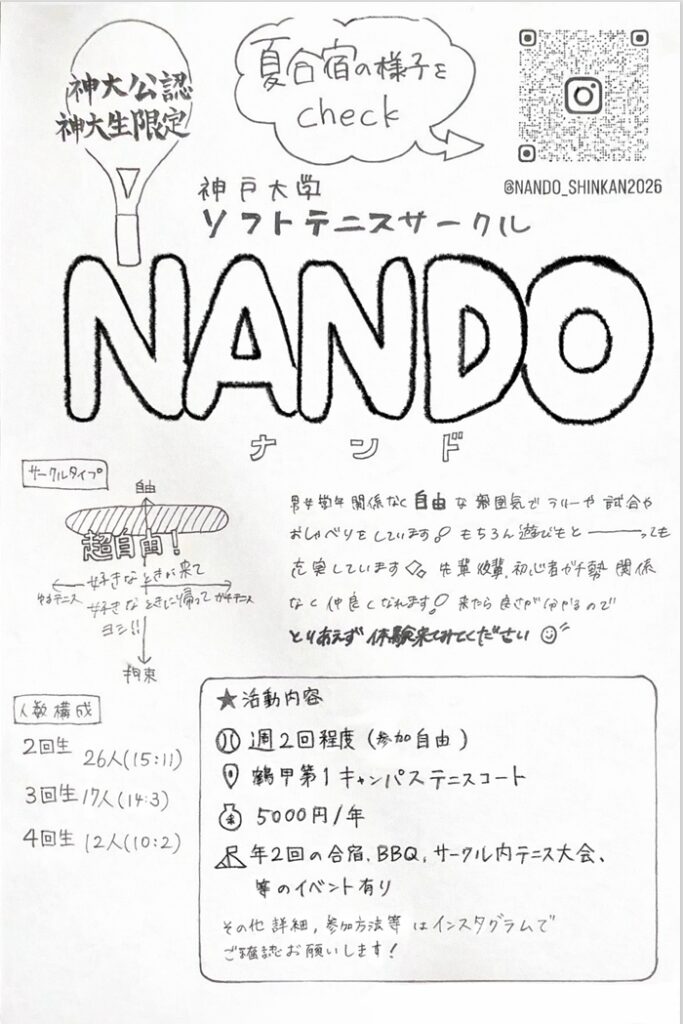 神大公認
神大生限定
夏合宿の様子を
check
@NANDO_SHINKAN2026
神戸大学
ソフトテニスサークル
NANDO
ナンド
サークルタイプ
自由
超自由!
好きなときに来て
ゆるテニス
好きなときに帰って
ガチテニス
ヨシ!!
拘束
男女学年関係なく自由な雰囲気でラリーや試合や
おしゃべりをしています!! もちろん遊びもと———っても
充実しています 先輩後輩、初心者ガチ勢関係
なく仲良くなれます!! 来たら良さが分かるので
とりあえず体験来てみてください
人数構成
2回生 26人(15:11)
3回生 17人(14:3)
4回生 12人(10:2)
★活動内容
週2回程度(参加自由)
鶴甲第1キャンパステニスコート
5000円/年
年2回の合宿、BBQ、サークル内テニス大会、
等のイベント有り
その他詳細、参加方法等はインスタグラムで
ご確認お願いします!